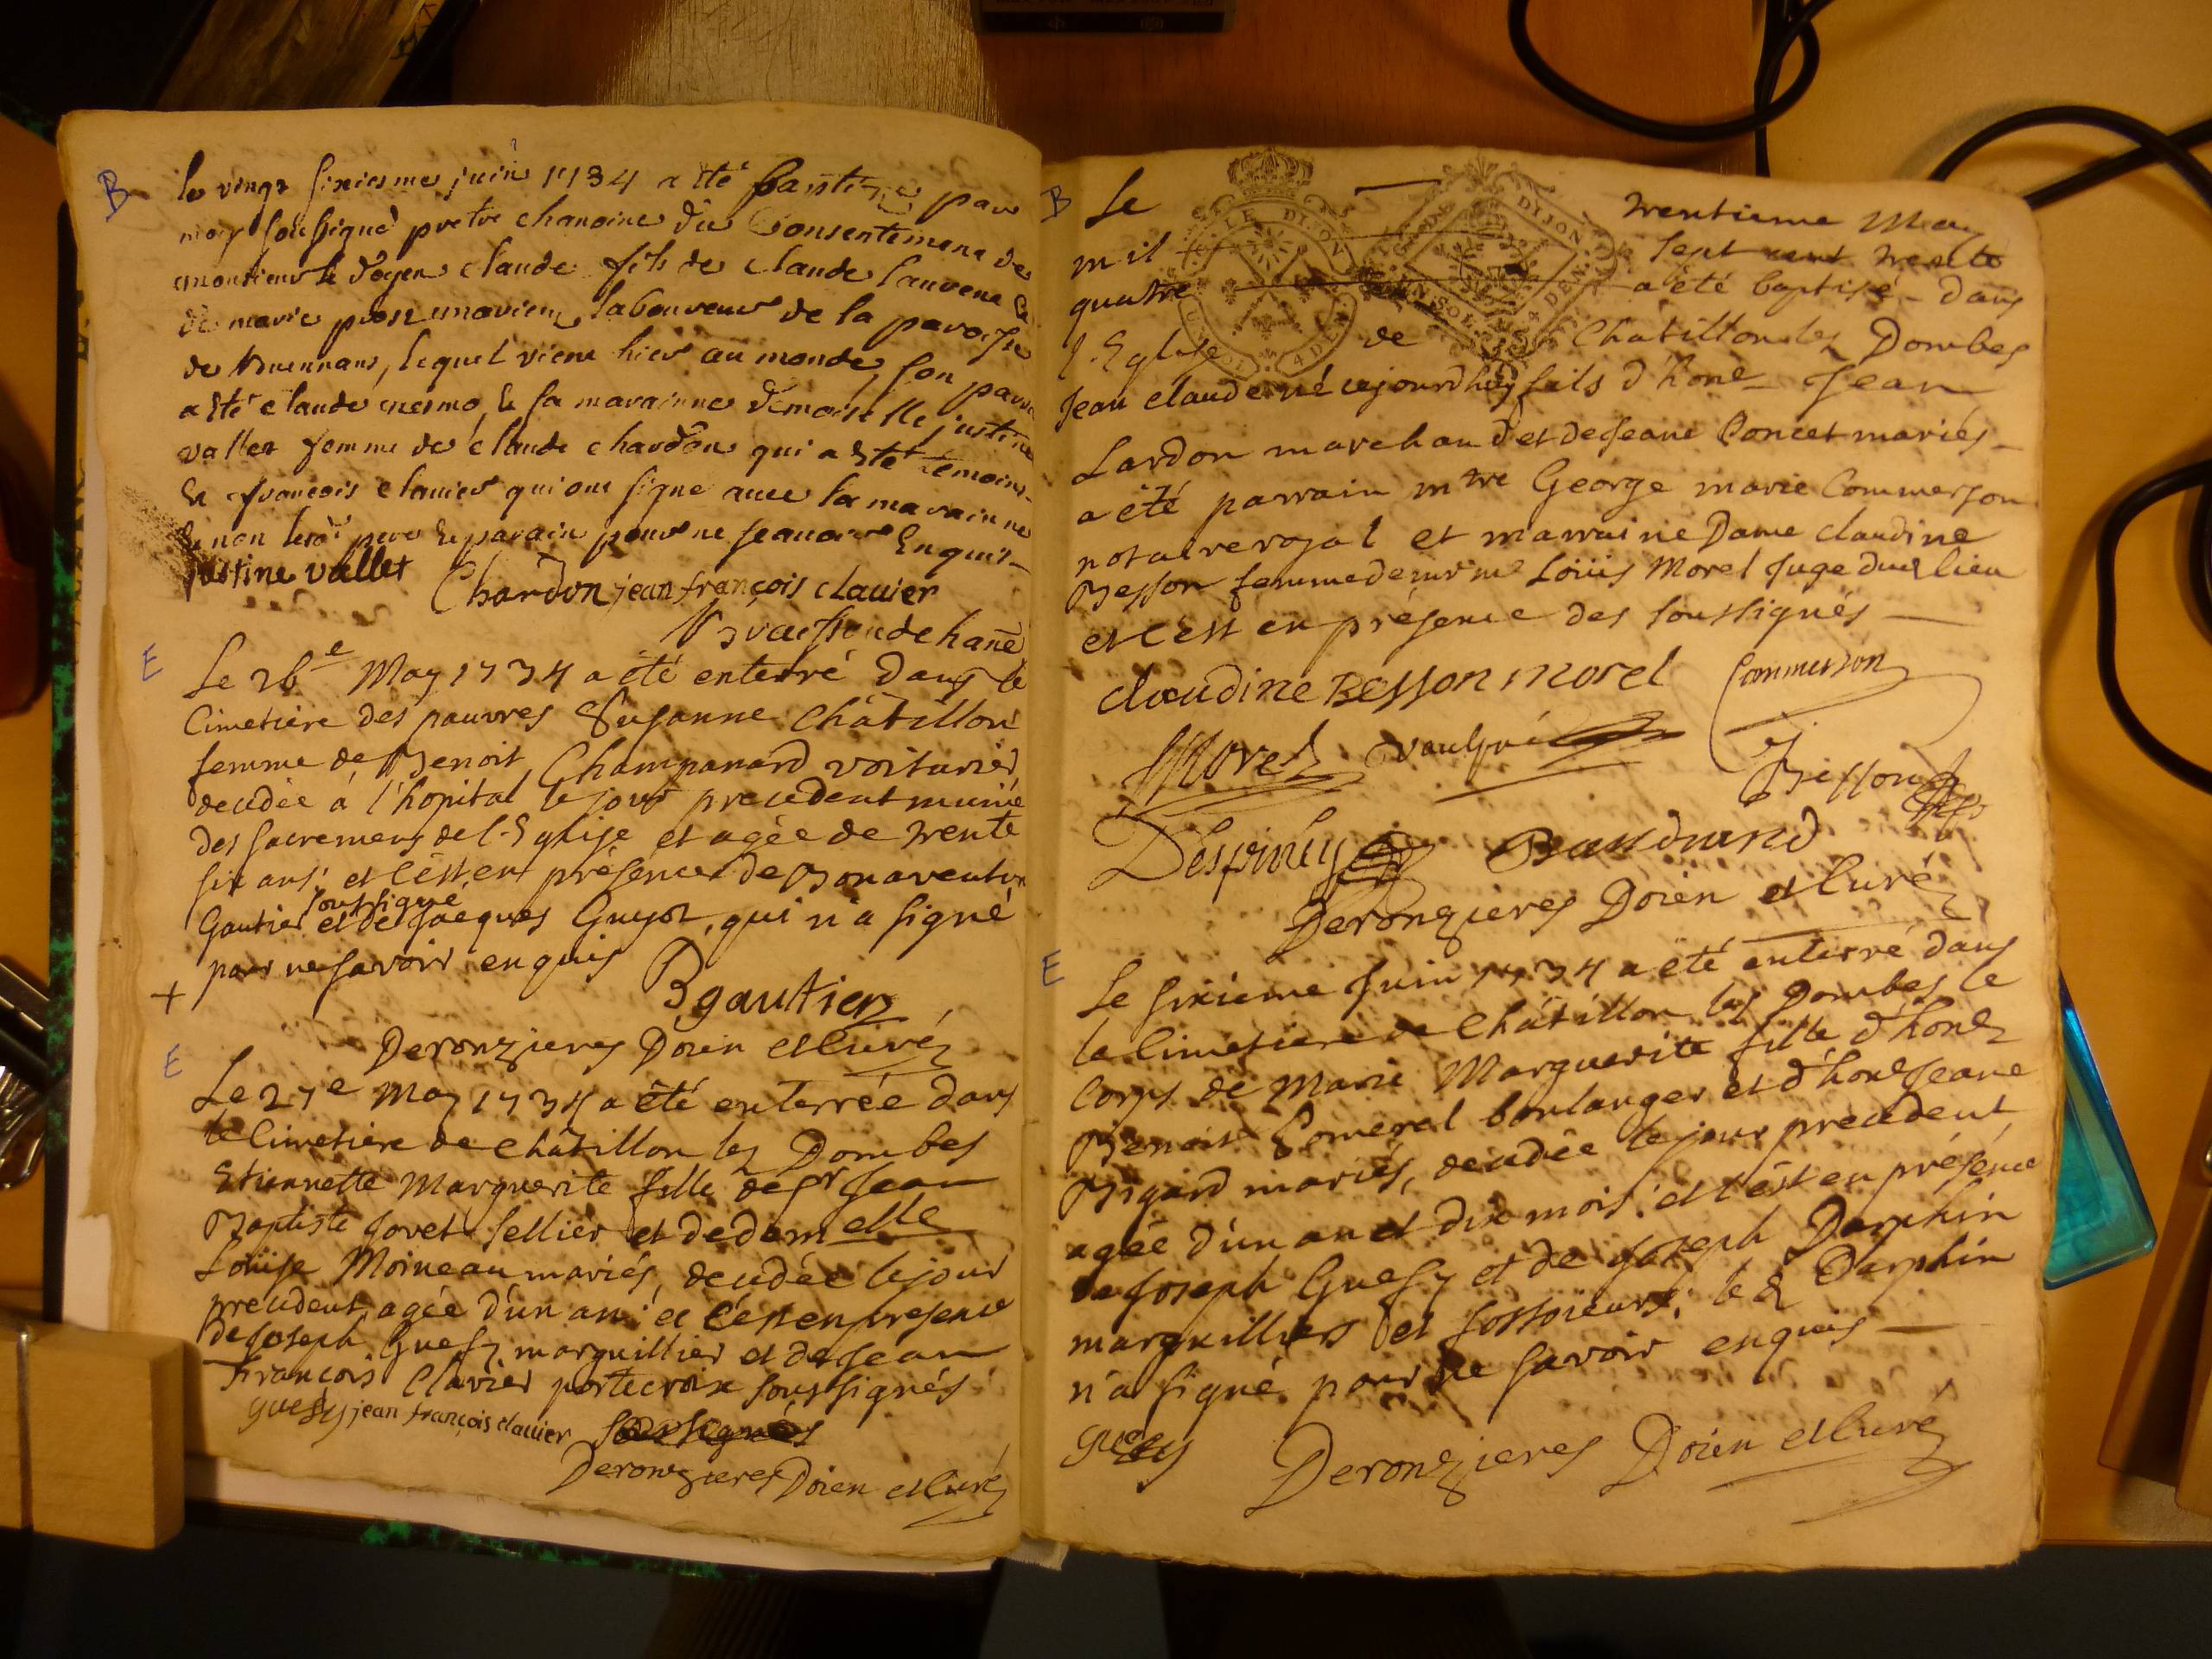 B
le vingt sixiesme juin 1734 a ete baptizé par
moy soussigné pretre chanoine du consentement de
monsieur le doyen claude fils de claude laurent &
de marie marieu laboureur de la paroisse
de, lequel vient hier au monde, son parain
a été claude mesmo, & sa marainne demoiselle justine
vallet femme de claude chardon qui a été temoins
& francois clauier qui ont signe avec la marainne
& non le père & parain pour ne scauoir Enquis
justine vallet Chardon jean françois clauier
E
Le 26e May 1734 a été enterré dans le
Cimetière des pauvres Susanne Châtillon
femme de Benoit Champanard voiturier
decédée à l'hopital le jour precedent munie
des sacremens de l'Eglise et agée de trente
six ans; et c'est en présence de Bonaventure
soussigné
Gautier et de Jacques Guyot, qui n'a signé
pour ne savoir enquis
+
Bgautier
Deronzieres Doien et Curé
E
Le 27e May 1734 a été enterrée dans
le Cimetière de Châtillon les Dombes
Etiennette Marguerite fille de sr Jean
Baptiste Joret sellier et de demelle
Loüise Moineau mariés, decédée le jour
precedent, agée d'un an: et c'est en presence
de Joseph Guesy marguillier et de Jean
François Clavier portecroix soussignés
guesy jean françois clauier soussignés
Deronzieres Doien et Curé
B
Le trentieme May
mil sept cent trente
quatre a été baptisé dans
l'Eglise de Châtillon les Dombes
Jean claude né cejourdhuy fils d'hone Jean
Lardon marchand et de Jeane Poncet mariés
a été parrain mtre George marie Commerson
notaire royal et marraine Dame claudine
Besson femme de Loüis Morel Juge dud lieu
et c'est en présence des soussignés
LE DIJON
DIJON
4 DEN
claudine Besson morel Commerson
Morel
Besson
Despiney Baudrand
Deronzieres Doien et Curé
E
Le sixieme Juin 1734 a été enterré dans
le Cimetiere de Châtillon les Dombes le
Corps de Marie Marguerite fille d'hone
Benoit Pomerel boulanger et d'hone Jeane
Bigard mariés, decédée le jour precedent
agée d'un an et dix mois: et c'est en présence
de Joseph Guesy et de Joseph Darphin
marguilliers et fossoieurs; led Darphin
n'a signé pour ne savoir enquis
guesy Deronzieres Doien et Curé